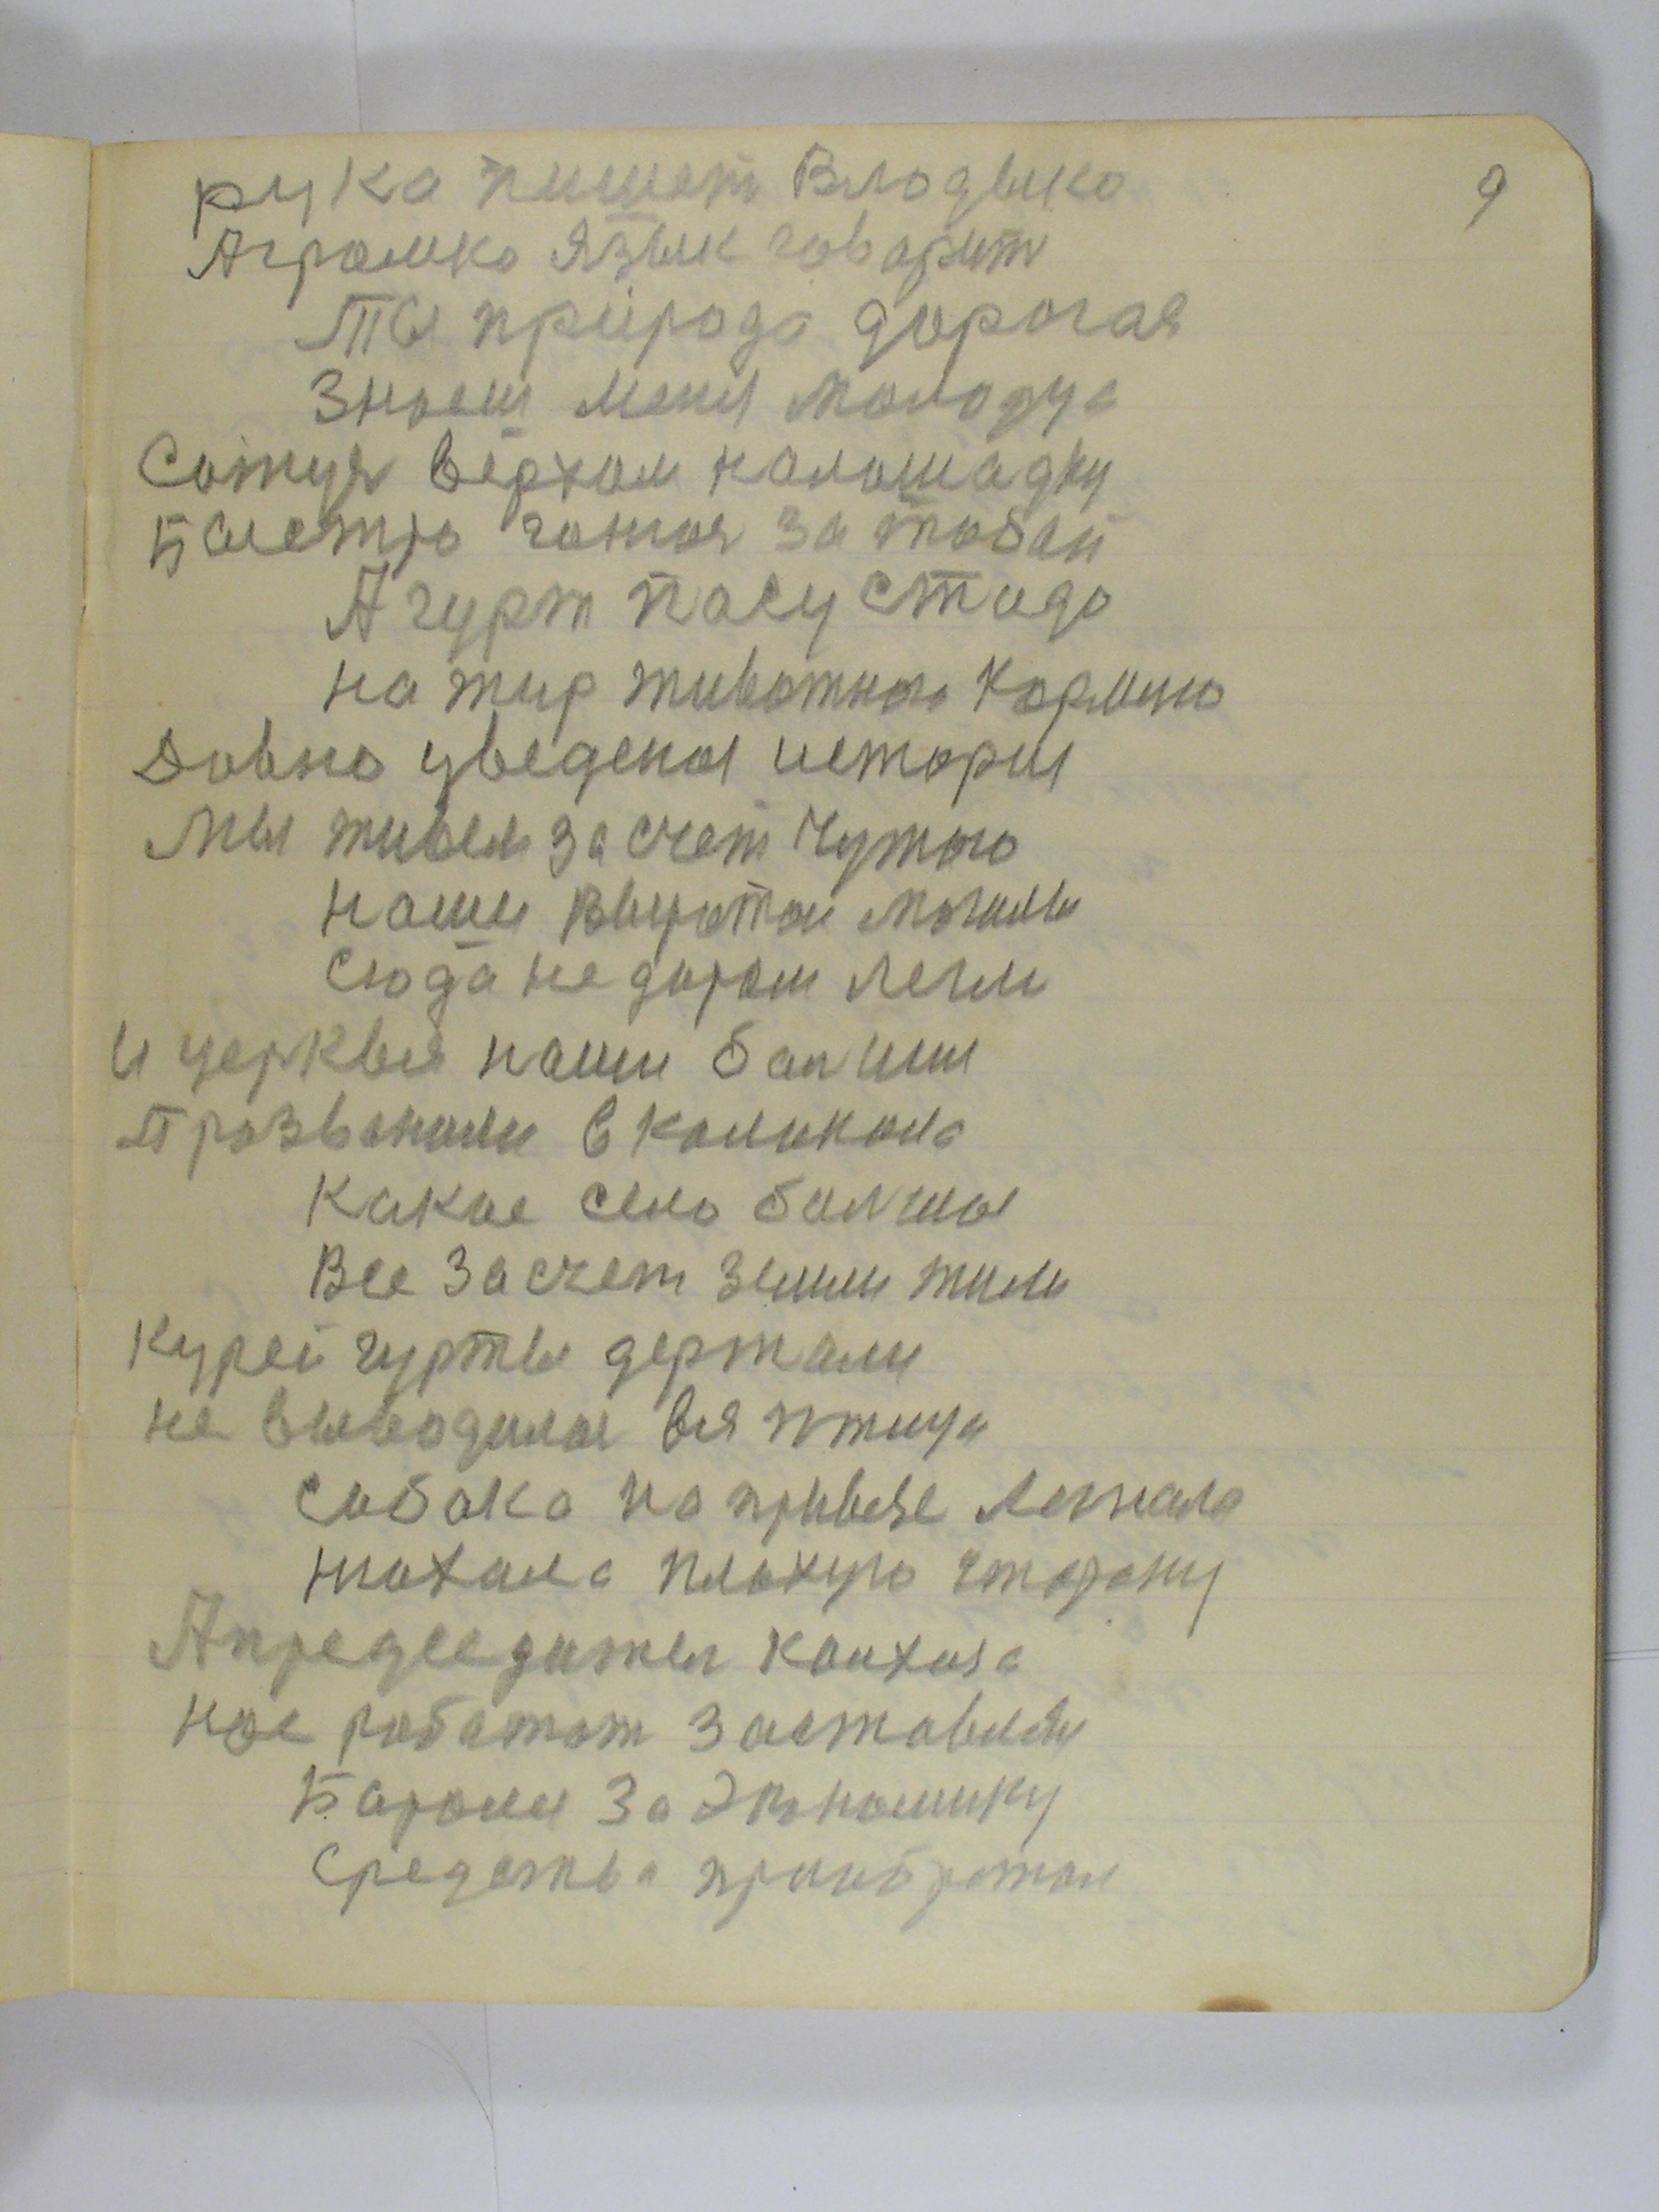 9
рука пишет Влодыко
Аграмко язык говарит
ты природа дорогая
Знаеш меня молодца
Сожуя верхом налошадку
Быстро гонюя за тобай
А гурт пасу стадо
на жир животного кормлю
Довно уведеная история
Мы живем засчет чужого
наши могилы
сюда не даром легли
И церквыя наши
празвонили в каликола
Какие село
Все засчет земли жили
Курей гурты держали
не выводилоя вся птица
собака на привезе лежала
нюхала плохую старону
Апредседатель
нас работат заставлял
Бароли за Экономику
Средства